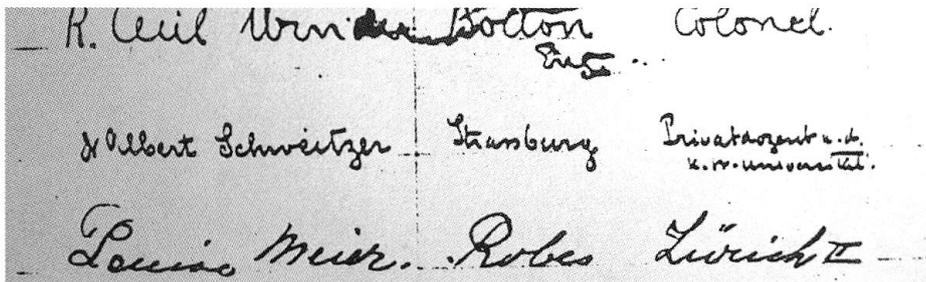 R. Cecil Bolton Colonel.
Eng.
Dr Albert Schweitzer Strassburg Privatdozent a. d.
K. W. Universität.
Louise Meier. Robes Zürich II